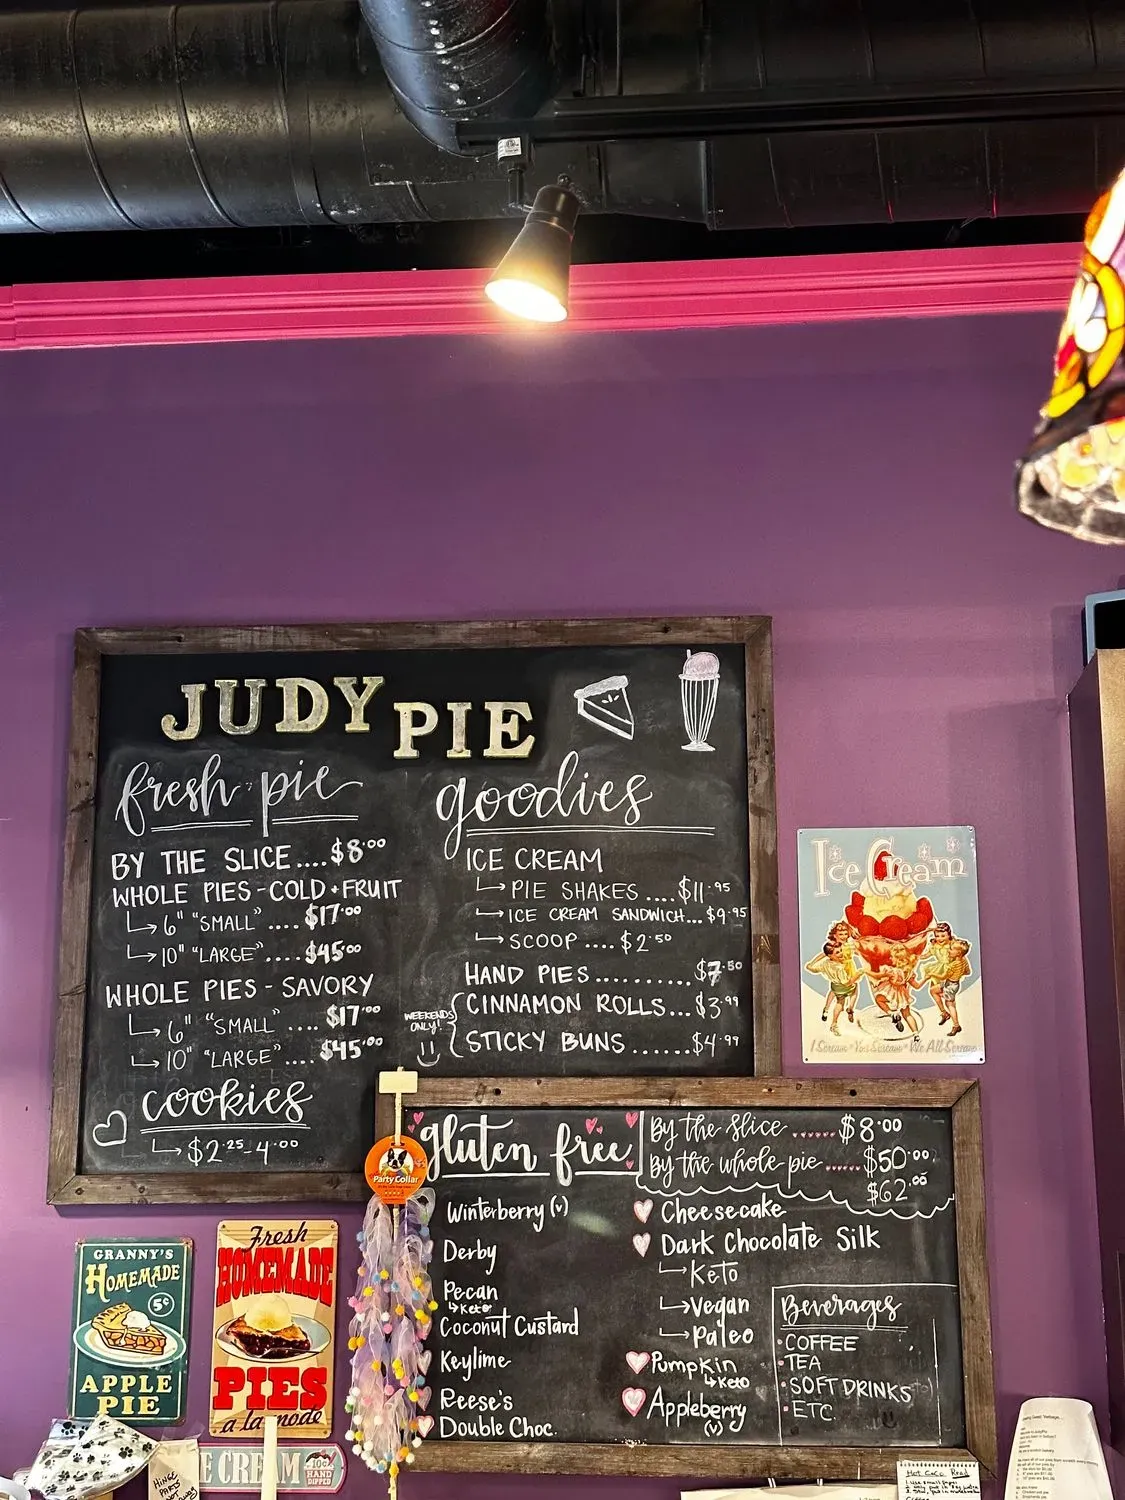 JUDY PIE
fresh pie
BY THE SLICE....$8.00
WHOLE PIES-COLD+FRUIT
6" "SMALL" .... $17.00
10" "LARGE".....$45.00
WHOLE PIES - SAVORY
6" "SMALL" .... $17.00
10" "LARGE".... $45.00
cookies
$2.25-4.00
goodies
ICE CREAM
PIE SHAKES ....$11.95
ICE CREAM SANDWICH...$9.95
SCOOP ....$2.50
HAND PIES..........$7.50
WEEKENDS
ONLY!
CINNAMON ROLLS...$3.99
STICKY BUNS ......$4.99
Ice Cream
I Scream You Scream We All Scream
gluten free
By the slice ......$8.00
By the whole pie......$50.00
$62.00
Winterberry (v)
Derby
Pecan
Keto
Coconut Custard
Keylime
Reese's
Double Choc.
Cheesecake
Dark Chocolate Silk
Keto
Vegan
Paleo
Pumpkin
Keto
Appleberry
(v)
Beverages
COFFEE
TEA
SOFT DRINKS
ETC.
Party Collar
GRANNY'S
HOMEMADE
5¢
APPLE
PIE
Fresh
HOMEMADE
PIES
a la mode
E CREAM
10¢
HAND
DIPPED
HINGE
PARTS
Hot Coco Read